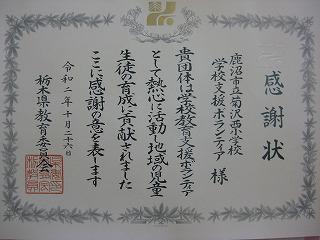 感謝状
鹿沼市立菊沢西小学校
学校支援ボランティア 様
貴団体は学校教育支援ボランティア
として熱心に活動し地域の児童
生徒の育成に貢献されました
ここに感謝の意を表します
令和二年十月二十六日
栃木県教育委員会